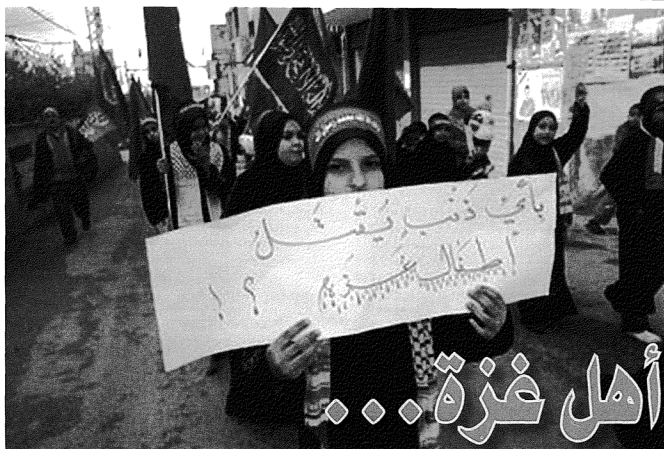 بأي ذَنْبٍ يُقْتَلُ
أطفال غزة ؟ !
أهل غزة...